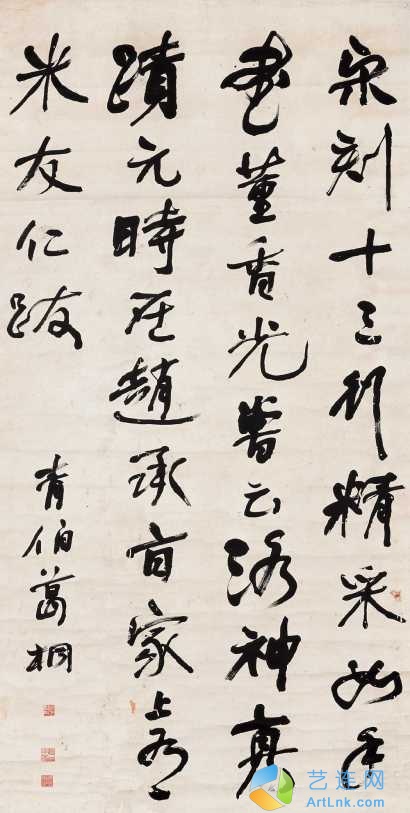 宋刻十三行精采如手
書董香光嘗云洛神真
蹟元時在趙承旨家上有
米友仁跋
青伯葛桐
艺连网
ArtLnk.com